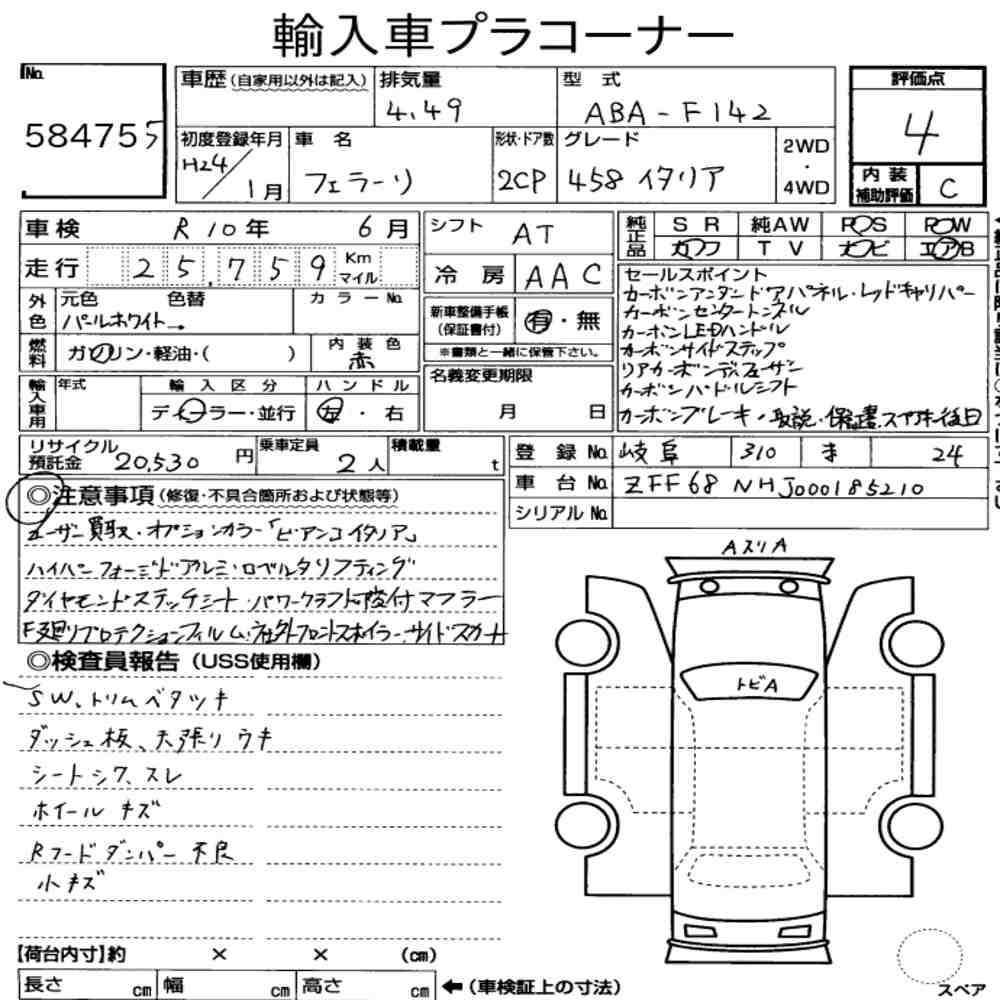 輸入車プラコーナー
No.
584755
車歴(自家用以外は記入)
排気量
4.49
型式
ABA-F142
評価点
4
初度登録年月
H24/1月
車名
フェラーリ
形状・ドア数
2CP
グレード
458 イタリア
2WD
・
4WD
内装
補助評価
C
車検 R10年 6月
シフト AT
純正品
SR
純AW
PS
PW
カワ
TV
ナビ
エアB
走行 25,759 Km
マイル
冷房 AAC
外色
元色 色替
カラーNo.
パールホワイト→
新車整備手帳
(保証書付)
有・無
※書類と一緒に保管下さい。
燃料
ガソリン・軽油・( )
内装色
赤
セールスポイント
カーボンアンダードアパネル・レッドキャリパー
カーボンセンタートンネル
カーボンLEDハンドル
カーボンサイドステップ
リアカーボンディフューザー
カーボンハンドルシフト
カーボンブレーキ・取説・保証書・スペアキー後日
輸入車用
年式
輸入区分
ディーラー・並行
ハンドル
左・右
名義変更期限
月 日
リサイクル
預託金
20,530円
乗車定員
2人
積載量
t
登録No. 岐阜 310 ま 24
車台No. ZFF68NHJ000185210
シリアルNo.
◎注意事項(修復・不具合箇所および状態等)
ユーザー買取・オプションカラー「ビアンコイタリア」
ハイパーフォージドアルミ・ロベルタリフティング
ダイヤモンドステッチシート・パワークラフト可変付マフラー
F廻りプロテクションフィルム・社外フロントスポイラー・サイドスカート
◎検査員報告(USS使用欄)
SW、トリムベタツキ
ダッシュ板、天張りウキ
シートシワ、スレ
ホイールキズ
Rフードダンパー不良
小キズ
AスリA
トビA
【荷台内寸】約 × × (cm)
長さ cm
幅 cm
高さ cm
←(車検証上の寸法)
スペア